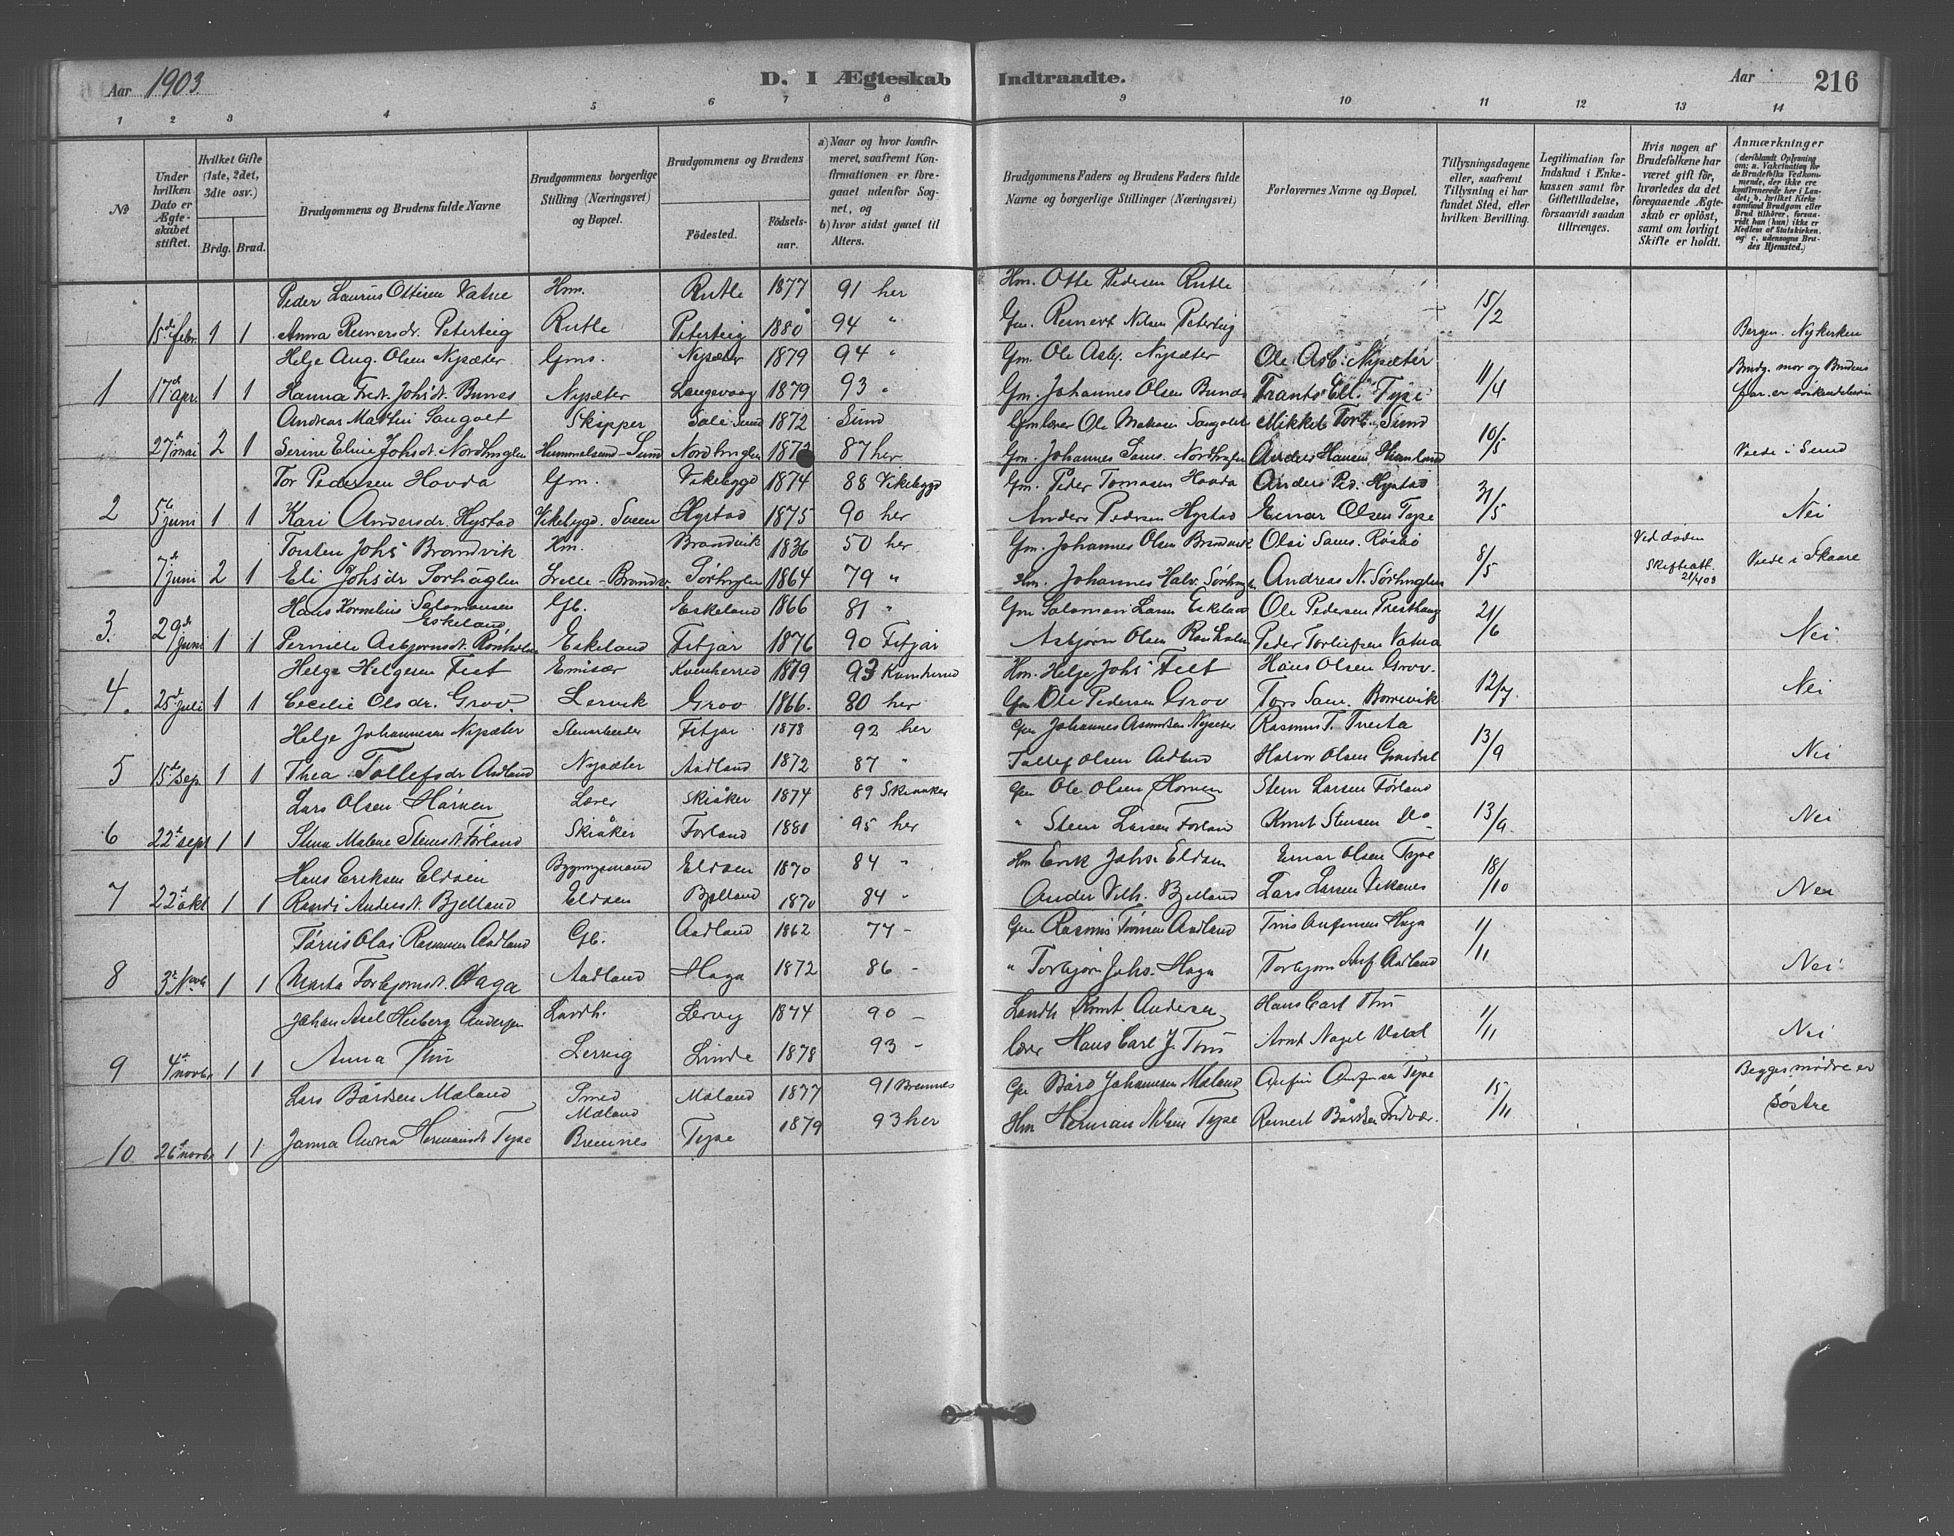 Aar 1903. D. I Ægteskab Indtraadte. Aar 216
1 2 3 4 5 6 7 8 9 10 11 12 13 14
№
Under hvilken Dato er Ægteskabet stiftet.
Hvilket Gifte (1ste, 2det, 3die osv.)
Brdg. Brud.
Brudgommens og Brudens fulde Navne
Brudgommens borgerlige Stilling (Næringsvei) og Bopæl.
Brudgommens og Brudens
Födested. Födselsaar.
a) Naar og hvor konfirmeret, saafremt Konfirmationen er foregaaet udenfor Sognet, og
b) hvor sidst gaaet til Alters.
Brudgommens Faders og Brudens Faders fulde Navne og borgerlige Stillinger (Næringsvei)
Forlovernes Navne og Bopæl.
Tillysningsdagene eller, saafremt Tillysning ei har fundet Sted, efter hvilken Bevilling.
Legitimation for Indskud i Enkekassen samt for Giftetilladelse, forsaavidt saadan tiltrænges.
Hvis nogen af Brudefolkene har været gift för, hvorledes da det foregaaende Ægteskab er oplöst, samt om lovligt Skifte er holdt.
Anmærkninger
(deriblandt Oplysning om: a. Vakcination for de Brudefolks Vedkommende, der ikke ere konfirmerede her i Landet; b. hvilket Kirkesamfund Brudgom eller Brud tilhörer, forsaavidt han (hun) ikke er Medlem af Statskirken. og c. udensogns Brudes Hjemsted.)
Peder Laurus Ottesen Vatne Hm. Rutle 1877 91 her Hm. Otte Pedersen Rutle
15de febr. 1 1 Anna Reinersdr. Peterteig Rutle Peterteig 1880 94 " Gm. Reinert Nilsen Peterteig 15/2 Bergen. Nykirken
Helje Aug. Olsen Nysæter Gms. Nysæter 1879 94 " Gm. Ole Asbj. Nysæter Ole Asb. Nysæter Brudg. mor og Brudens
1 17d apr. 1 1 Hanna Fredr. Johsdr. Bunes Nysæter Langevaag 1879 93 " Gm. Johannes Olsen Bunes Frants Ell. Tyse 11/4 far er
Andreas Mattin Sangolt Skipper Sale Sund 1872 Sund Ole Sangolt Mikkel Tort. Sund
27d mai 2 1 Serine Eline Johsdr. Nordhuglen Hummelsund-Sund Nordhuglen 1872 87 her Gm. Johannes Sams. Nordhuglen Anders Hansen 10/5 Viede i Sund
Tor Pedersen Hovda Gm. Vikebygd 1874 88 Vikebygd Gm. Peder Tomasen Hovda Anders Ped. Hystad
2 5te juni 1 1 Kari Andersdr. Hystad Vikebygd. Sveen Hystad 1875 90 her Anders Pedersen Hystad Einar Olsen Tyse 31/5 Nei
Torsten Johs Brandvik Km. Brandvik 1836 50 her Gm. Johannes Olsen Brandvik Olai Sams. Røsbø Ved døden
7d juni 2 1 Eli Johsdr Sørhuglen Lille-Brandvik Sørhuglen 1864 79 " Hm. Johannes Halv. Sørhuglen Andreas N. Sørhuglen 8/5 Skifteatt. 21/4 03 Viede i Skaare
Hans Kornelius Salomonsen Eskeland Gb. Eskeland 1866 81 " Gm Salomon Larsen Eskeland Ole Pedersen Presthaug
3. 29d juni 1 1 Pernille Asbjørnsdr. Rønholm Eskeland Fitjar 1876 90 Fitjar Asbjørn Olsen Peder Torleifsen Vatna 21/6 Nei
Helge Helgesen Feet Emisær Kvinherred 1879 93 Kvinherred Hm. Helje Johs Feet Hans Olsen Grov.
4. 25d juli 1 1 Cecilie Olsdr. Grov. Lervik Grov 1866. 80 her Gm Ole Pedersen Grov Tors Sam. Borrevik 12/7. Nei
Helje Johannesen Nysæter Stenarbeider Fitjar 1878 92 her Gm Johannes Asmundsen Nysæter Rasmus T. Tveita
5 15d sep. 1 1 Thea Tollefsdr Aadland Nysæter Aadland 1872 87 " Tollef Olsen Aadland Halvor Olsen 13/9 Nei
Lars Olsen Hårsen Lærer Skiåker 1874 89 Skiaaker Gm Ole Olsen Sten Larsen Førland
6 22d sept 1 1 Stina Malene Stensdr. Førland Skiåker Førland 1880 95 her " Sten Larsen Førland Knut Stensen Do 13/9 Nei
Hans Eriksen Eldøen Bygningsmand Eldøen 1870 84 " Hm Erik Johs. Eldøen Einar Olsen Tyse
7 22d okt 1 1 Randi Andersdr. Bjelland Eldøen Bjelland 1870 84 " Anders Vilh. Bjelland Lars Larsen Vikanes 18/10 Nei
Tøris Olai Rasmusen Aadland Gb. Aadland 1862 77 - Gm Rasmus Aadland Haga
8 3d Novb 1 1 Marta Torbjørnsdr. Haga Aadland Haga 1872 86 - " Torbjørn Johs. Haga Torbjørn Anf. Aadland 1/11 Nei
Johan Axel Heiberg Andersen Landh. Lervig 1874 90 - Landh. Knut Andersen Hans Carl Thu
9 4d novbr 1 1 Anna Thu Lervig Linde 1878 93 - lærer Hans Carl J. Thu Arnt Nagel 1/11 Nei
Lars Bårdsen Mæland Smed Mæland 1877 91 Bremnes Gm Bård Johannesen Mæland Anfin Anfinsen Tyse Begges mødre er
10 26d novbr 1 1 Janna Andrea Hermansdr. Tyse Mæland Bremnes Tyse 1879 93 her Hm Herman Nilsen Tyse Reinert Bårdsen 15/11 søstre